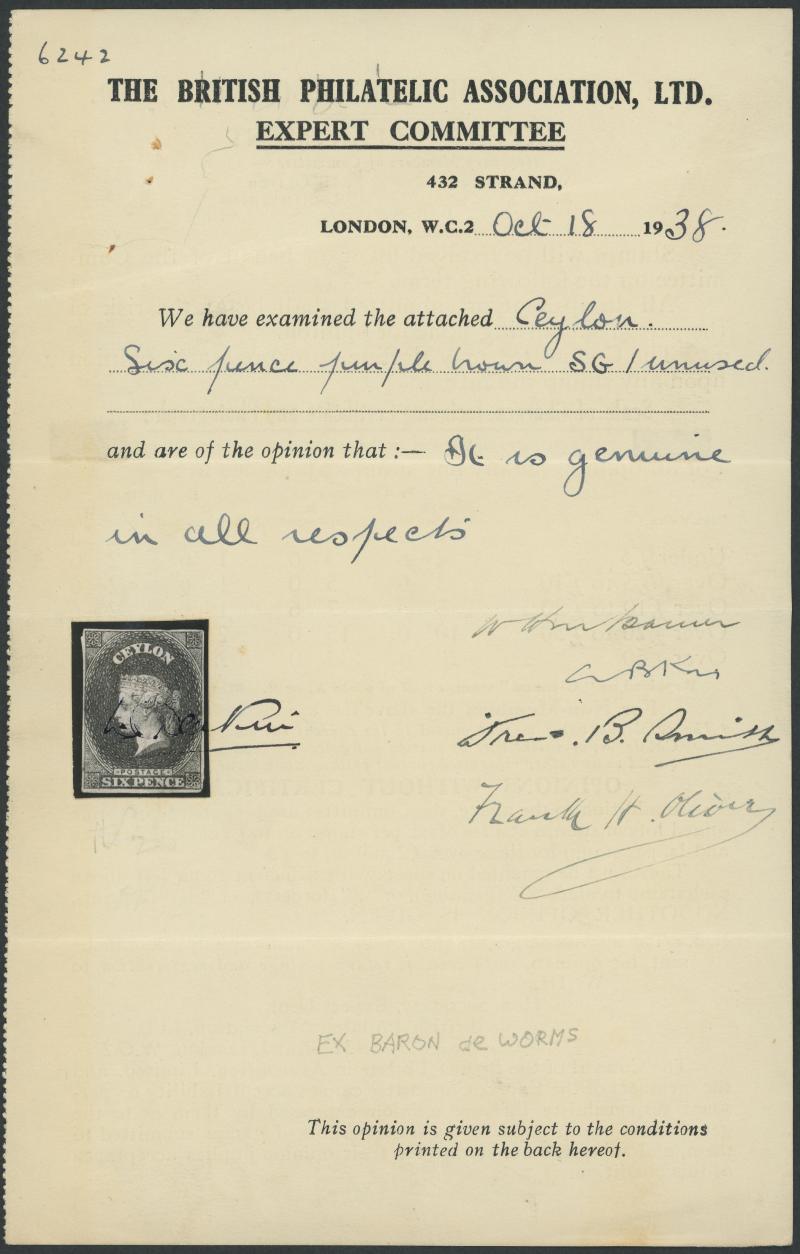 6242
THE BRITISH PHILATELIC ASSOCIATION, LTD.
EXPERT COMMITTEE
432 STRAND,
LONDON, W.C.2 Oct 18 1938.
We have examined the attached Ceylon.
Six pence purple brown SG 1 unused.
and are of the opinion that :— It is genuine
in all respects
CEYLON
POSTAGE
SIX PENCE
B. Smith
Frank H. Oliver
EX BARON de WORMS
This opinion is given subject to the conditions
printed on the back hereof.